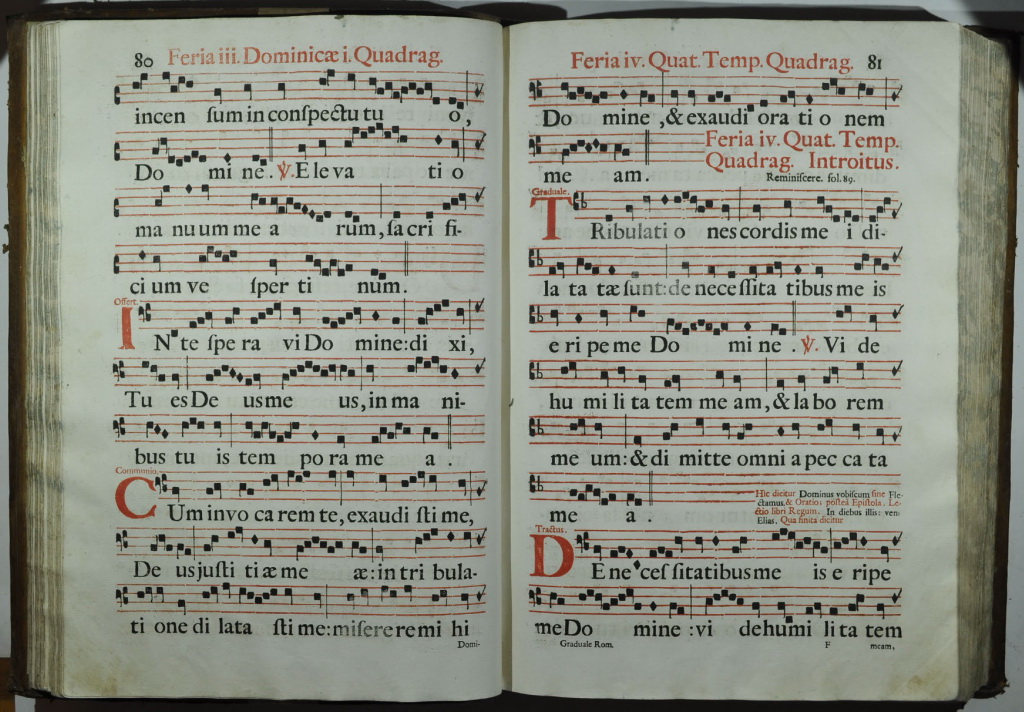 80 Feria iii. Dominicæ i. Quadrag.
incen ſum in conſpectu tu o,
Do mi ne. ℣. E le va ti o
ma nu um me a rum, ſa cri fi-
ci um ve ſper ti num.
Offert.
IN te ſpe ra vi Do mine: di xi,
Tu es De us me us, in ma ni-
bus tu is tem po ra me a.
Communio.
CUm invo ca rem te, exaudi ſti me,
De us juſti ti æ me æ: in tri bula-
ti one di lata ſti me: miſere re mi hi
Domi-
Feria iv. Quat. Temp. Quadrag. 81
Do mine, & exaudi ora ti o nem
me am. Feria iv. Quat. Temp.
Quadrag. Introitus.
Reminiſcere. fol. 89.
Graduale.
TRibulati o nes cordis me i di-
la ta tæ ſunt: de nece ſſita tibus me is
e ri pe me Do mi ne. ℣. Vi de
hu mi li ta tem me am, & la bo rem
me um: & di mitte omni a pec ca ta
me a.
Hic dicitur Dominus vobiſcum ſine Fle-
ctamus, & Oratio: poſtea Epiſtola. Le-
ctio libri Regum. In diebus illis: ven:
Elias. Qua finita dicitur
Tractus.
DE ne ceſ ſitatibus me is e ripe
me Do mine: vi de humi li ta tem
Graduale Rom. F meam,